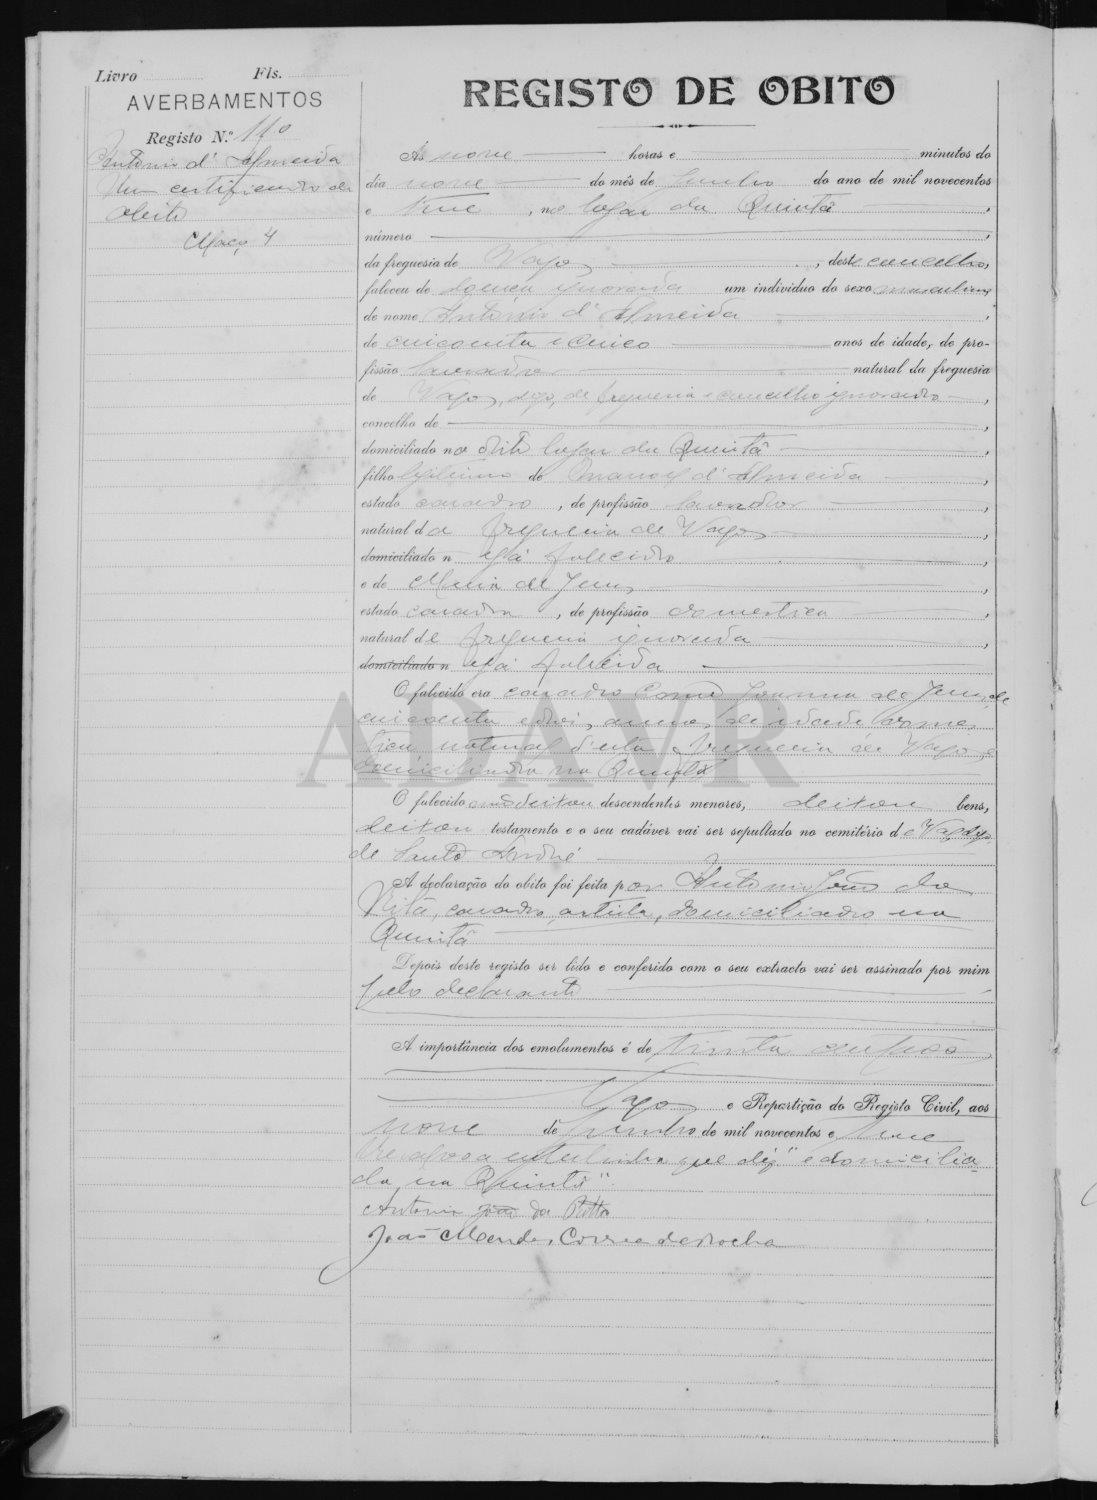 Livro Fls.
AVERBAMENTOS
Registo N.º 110
Antonio d'Almeida
Um certificado de
obito
Maço 4
REGISTO DE OBITO
Ás nove horas e minutos do
dia nove do mês de Junho do ano de mil novecentos
e , no logar da Quintã ,
número ,
da freguesia de Vagos , deste concelho,
faleceu de doença ignorada um individuo do sexo masculino
de nome António d'Almeida ,
de cincoenta e cinco anos de idade, de pro-
fissão lavrador natural da freguesia
de Vagos, digo, de freguesia e concelho ignorado ,
concelho de ,
domiciliado no dito logar da Quintã ,
filho legitimo de Manoel d'Almeida ,
estado casado , de profissão lavrador ,
natural da freguesia de Vagos ,
domiciliado n já falecido ,
e de Maria de Jesus ,
estado casada , de profissão domestica ,
natural de freguesia ignorada ,
domiciliado n já falecida
O falecido era casado com Joanna de Jesus, de
cincoenta e dois annos de idade domes
tica natural d'esta freguesia de Vagos e
domiciliada na Quintã
O falecido não deixou descendentes menores, deixou bens,
deixou testamento e o seu cadáver vai ser sepultado no cemitério de Vagos, digo,
de Santo André
A declaração do obito foi feita por Antonio João da
casado, artista, domiciliado na
Quintã
Depois deste registo ser lido e conferido com o seu extracto vai ser assinado por mim
pelo declarante
A importância dos emolumentos é de trinta centavos
Vagos e Repartição do Registo Civil, aos
nove de Junho de mil novecentos e
Resalvo a entrelinha que diz "e domicilia
da na Quintã".
Antonio João da
João Mendes Correia da Rocha
ADAVR